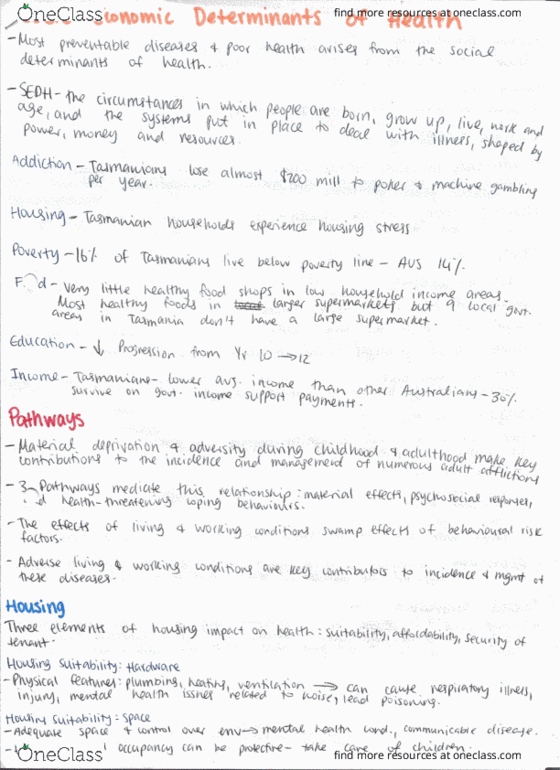 OneClass
find more resources at oneclass.com
Economic Determinants of Health
-Most preventable diseases & poor health arises from the social
determinants of health.
-SEDH- the circumstances in which people are born, grow up, live, work and
age, and the systems put in place to deal with illness, shaped by
power, money and resources.
Addiction - Tasmanians lose almost $200 mill to poker & machine gambling
per year.
Housing - Tasmanian households experience housing stress
Poverty -16% of Tasmanians live below poverty line - AUS 14%.
F d - Very little healthy food shops in low household income areas.
Most healthy foods in larger supermarkets but 9 local govt.
areas in Tasmania don't have a large supermarket.
Education - ↓ Progression from Yr 10 →12
Income - Tasmanians- lower avg. income than other Australians - 30%
survive on govt. income support payments.
Pathways
-Material deprivation & adversity during childhood & adulthood make key
contributions to the incidence and management of numerous adult afflictions
- 3 Pathways mediate this relationship: material effects, psychosocial responses,
d health-threatening coping behaviours.
-The effects of living & working conditions swamp effects of behavioural risk
factors.
- Adverse living & working conditions are key contributors to incidence & mgmt of
these diseases.
Housing
Three elements of housing impact on health: suitability, affordability, security of
tenant.
Housing Suitability: Hardware
-Physical features: plumbing, heating, ventilation → can cause respiratory illness,
injury, mental health issues related to noise, lead poisoning.
Housing Suitability: Space
-Adequate space & control over env→mental health cond., communicable disease.
occupancy can be protective- take care of children.
OneClass
find more resources at oneclass.com